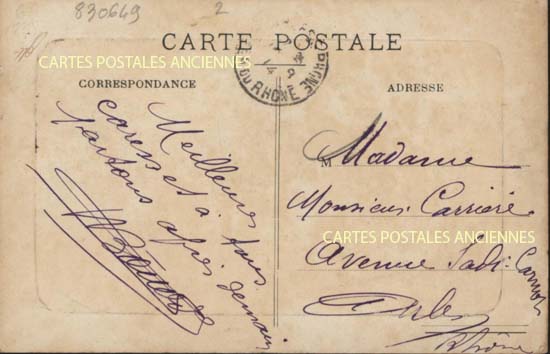 830649
2
CARTE POSTALE
CARTES POSTALES ANCIENNES
CORRESPONDANCE
ADRESSE
DU RHONE
Meilleures
caresses à tous
partons après demain
M Madame
Monsieur Carrière
CARTES POSTALES ANCIENNES
Avenue Sadi-Carnot
Arles
Rhône